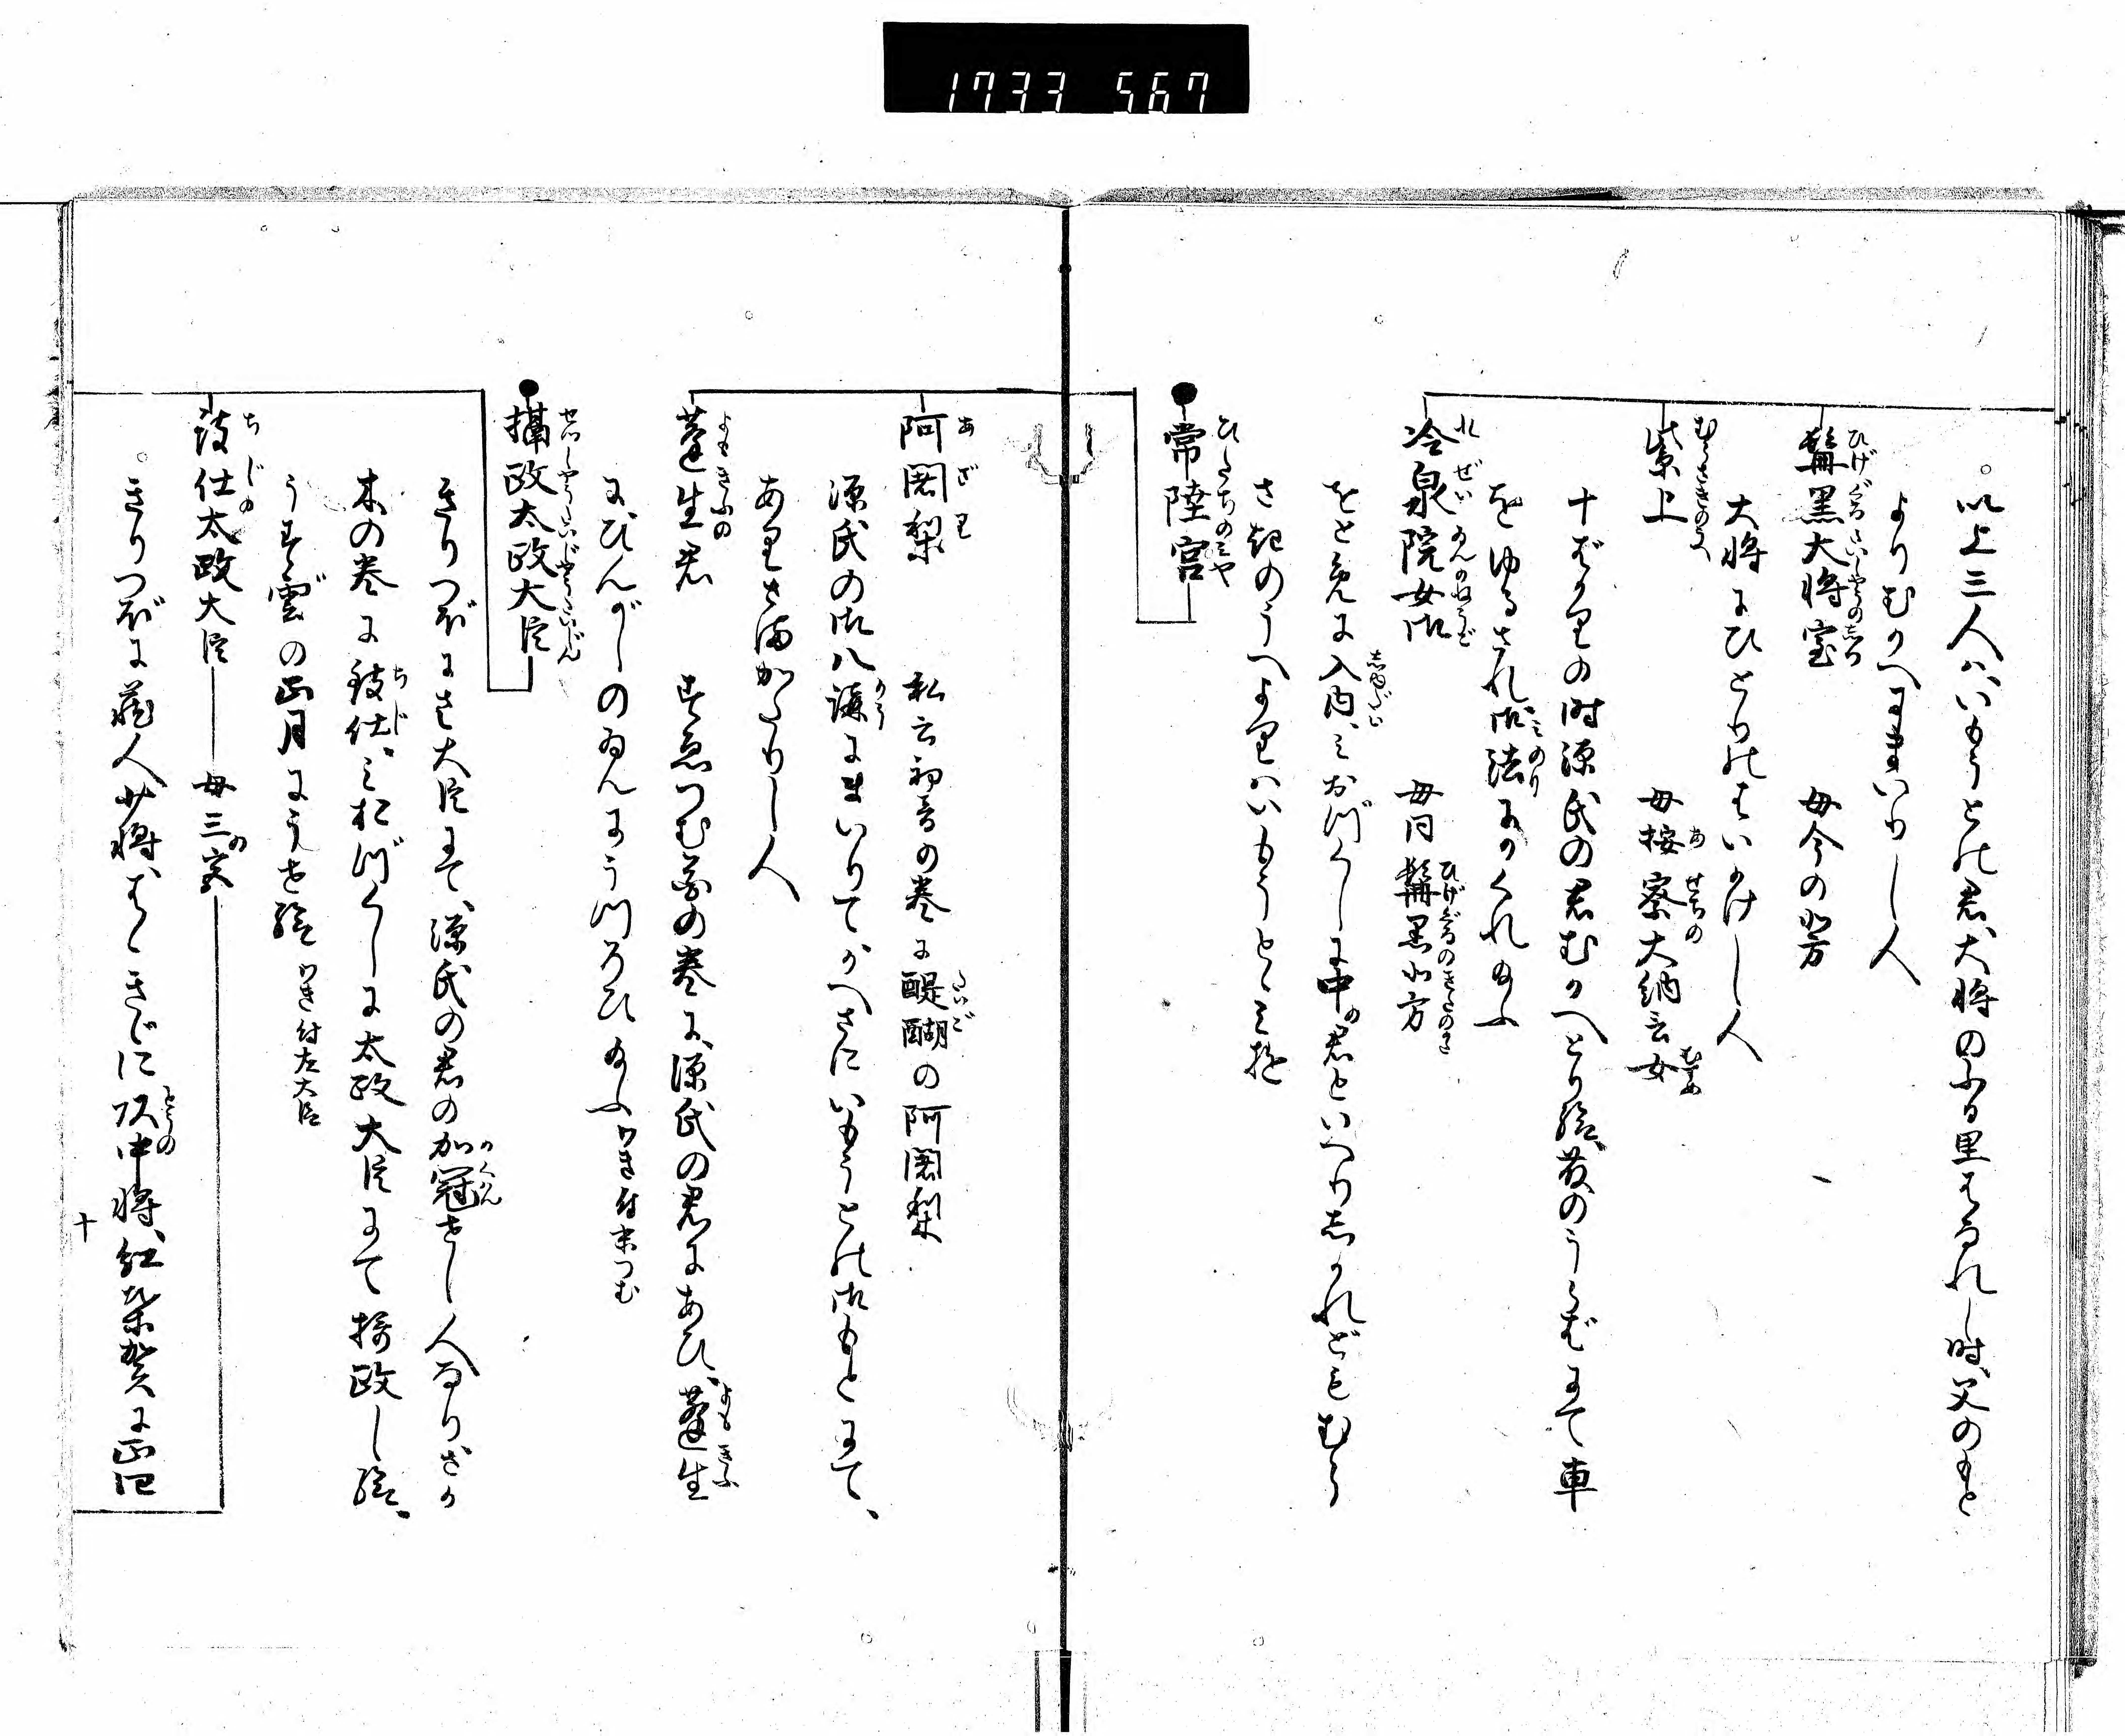 1733 567
以上三人ハいもうとの君、大将のふる里はなれし時、父のもと
よりむかへにまいりし人
髭黒大将室 母今の北方
大将にひとりのはいかけし人
紫上 母按察大納言女
十ばかりの時源氏の君むかへとり給、葵のうらばにて車
をゆるされ御法にかくれ給ふ
冷泉院女御 母同髭黒北方
をとめに入内、みおづくしに中の君といへりしかれどもむら
さきのうへよりハいもうとゝみゆ
常陸宮
阿闍梨 私云初音の巻に醍醐の阿闍梨
源氏の御八講にまいりてかへさにいもうとの御もとにて、
ありさまかたりし人
蓬生君 すゑつむ花の巻に、源氏の君にあひ、蓬生
に、ひんがしのゐんにうつろひ給ふ わき付末つむ
摂政太政大臣
きりつぼにさ大臣にて、源氏の君の加冠せし人なりさか
木の巻に致仕、みおづくしに太政大臣にて摂政し給、
うす雲の正月にうせ給 わき付左大臣
致仕太政大臣 母三の宮
きりつぼに蔵人少将、はゝきゞに頭中将、紅葉賀に正四
十